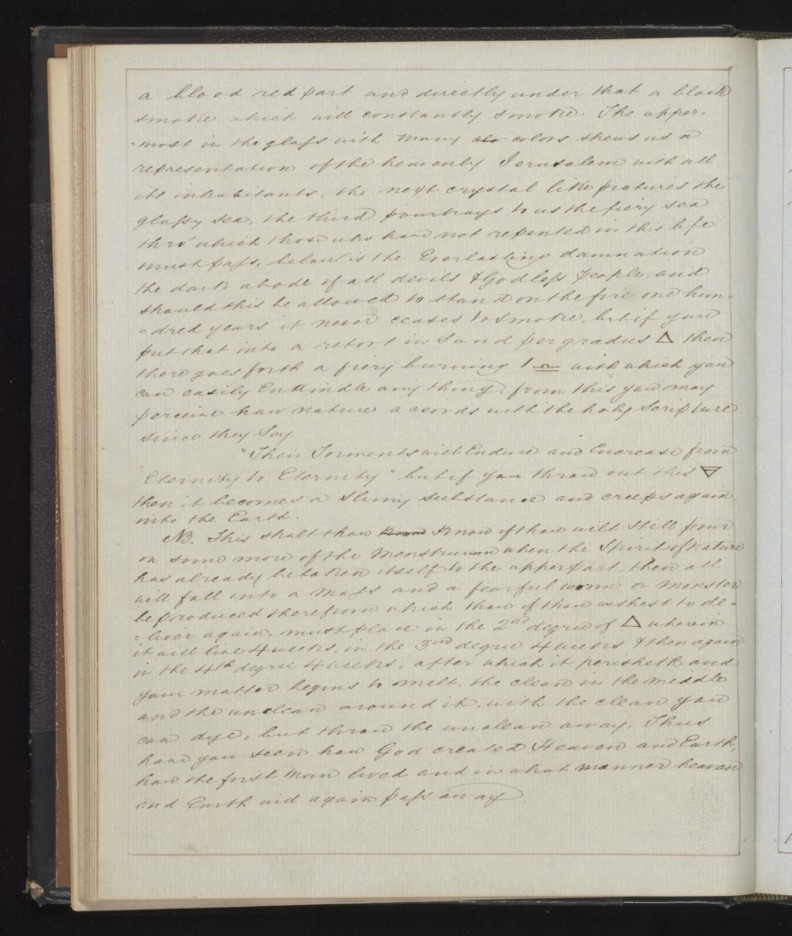 a blood red part and directly under that a black
smoke which will constantly smoke. The upper-
-most in the glass with many colors shews us a
representation of the heavenly Jerusalem with all
its inhabitants. the next crystal like pictures the
glassy sea, the third pourtrays to us the fiery sea
thro' which those who have not repented in this life
must pass, below is the Everlasting damnation
the dark abode of all devils & Godless people, and
should this be allowed to stand on the fire one hun-
-dred years it never ceases to smoke, but if you
put that into a retort in Sand per gradus △ then
there goes forth a fiery burning with which you
can easily Enkindle any thing; from this you may
perceive how nature accords with the holy Scripture
since they Say
"Their Torments will Endure and Encrease from
Eternity to Eternity" but if you throw out this
then it becomes a Slimy Substance and creeps again
into the Earth.
NB. This shalt thou Know if thou wilt still pour
on some more of the Menstruum when the Spirit of Nature
has already betaken itself to the upper part, then all
will fall into a Mass and a fearful worm or Monster
be produced therefrom which thou if thou wishest to de-
-liver again, must place in the 2nd degree of △ wherein
it will live 4 weeks, in the 3rd degree 4 weeks & then again
in the 4th degree 4 weeks, after which it perisheth and
your matter begins to melt, the clean in the middle
and the unclean around it, with the clean you
can dye, but throw the unclean away. Thus
have you seen how God created Heaven and Earth,
how the first Man lived and in what manner heaven
and Earth will again pass away.